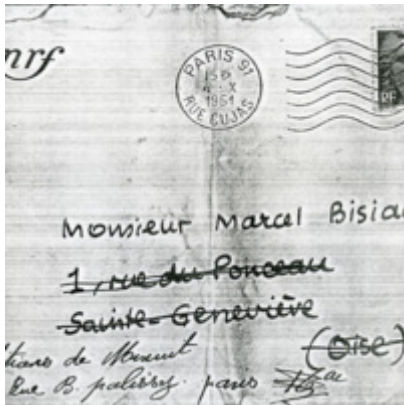 nrf
PARIS 91
1951
RUE CUJAS
RF
Monsieur Marcel Bisia
1, rue du Ponceau
Sainte-Geneviève
(Oise)
de Minuit
Rue B. palissy. paris